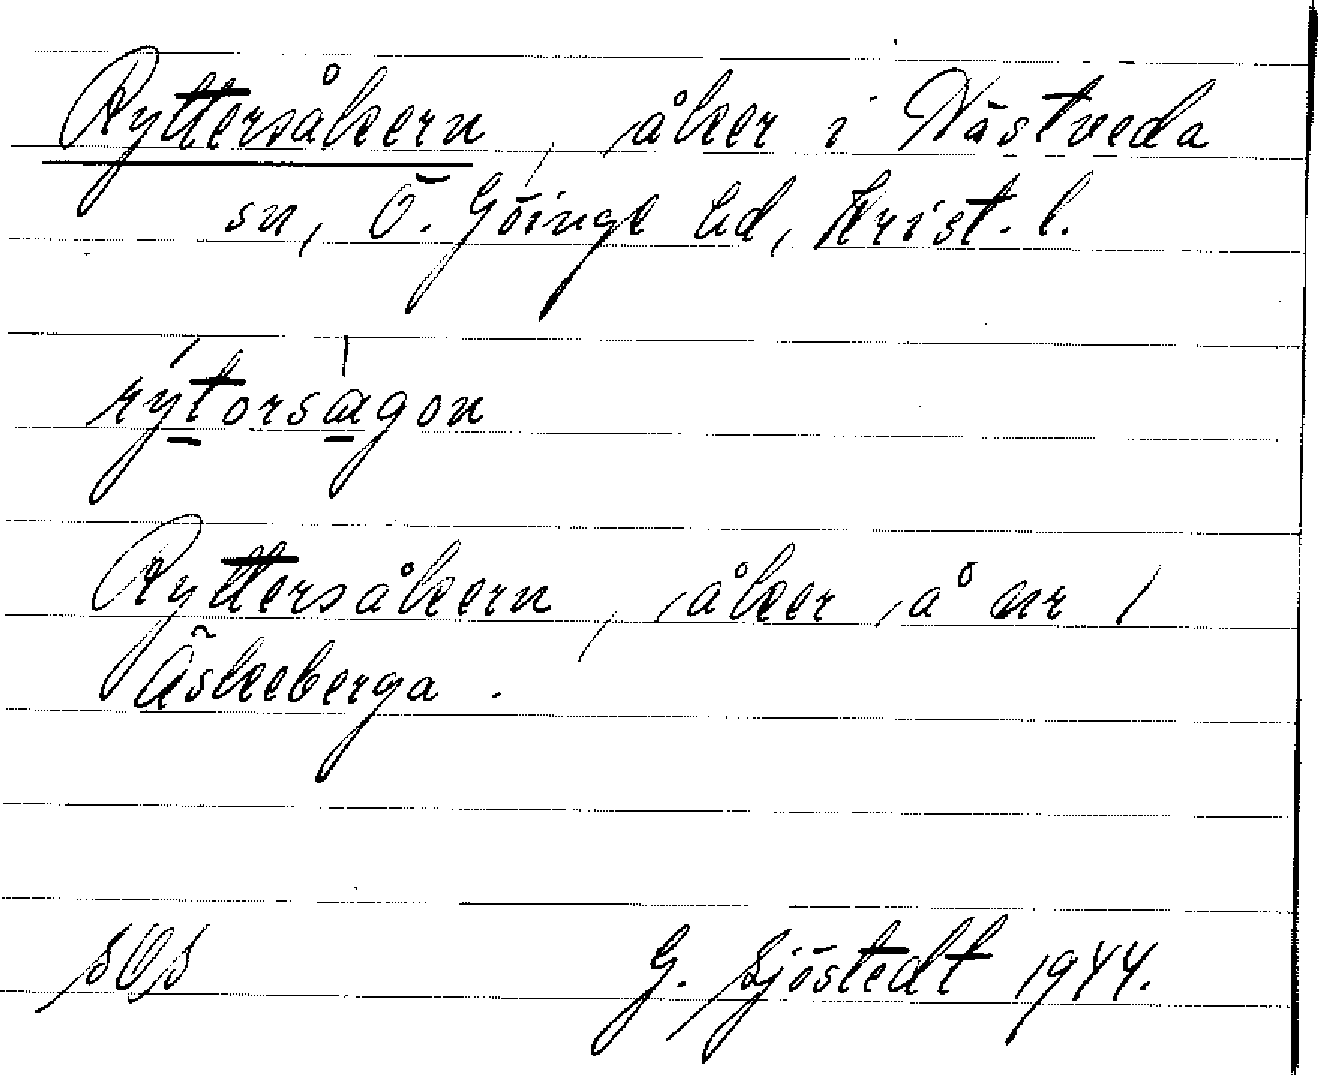 Ryttersåkern, åker i Nästveda
sn, Ö. Göinge hd, Krist. l.
rýtorságon
Ryttersåkern, åker å nr 1
Äskeberga.
SOS G. Sjöstedt 1944.